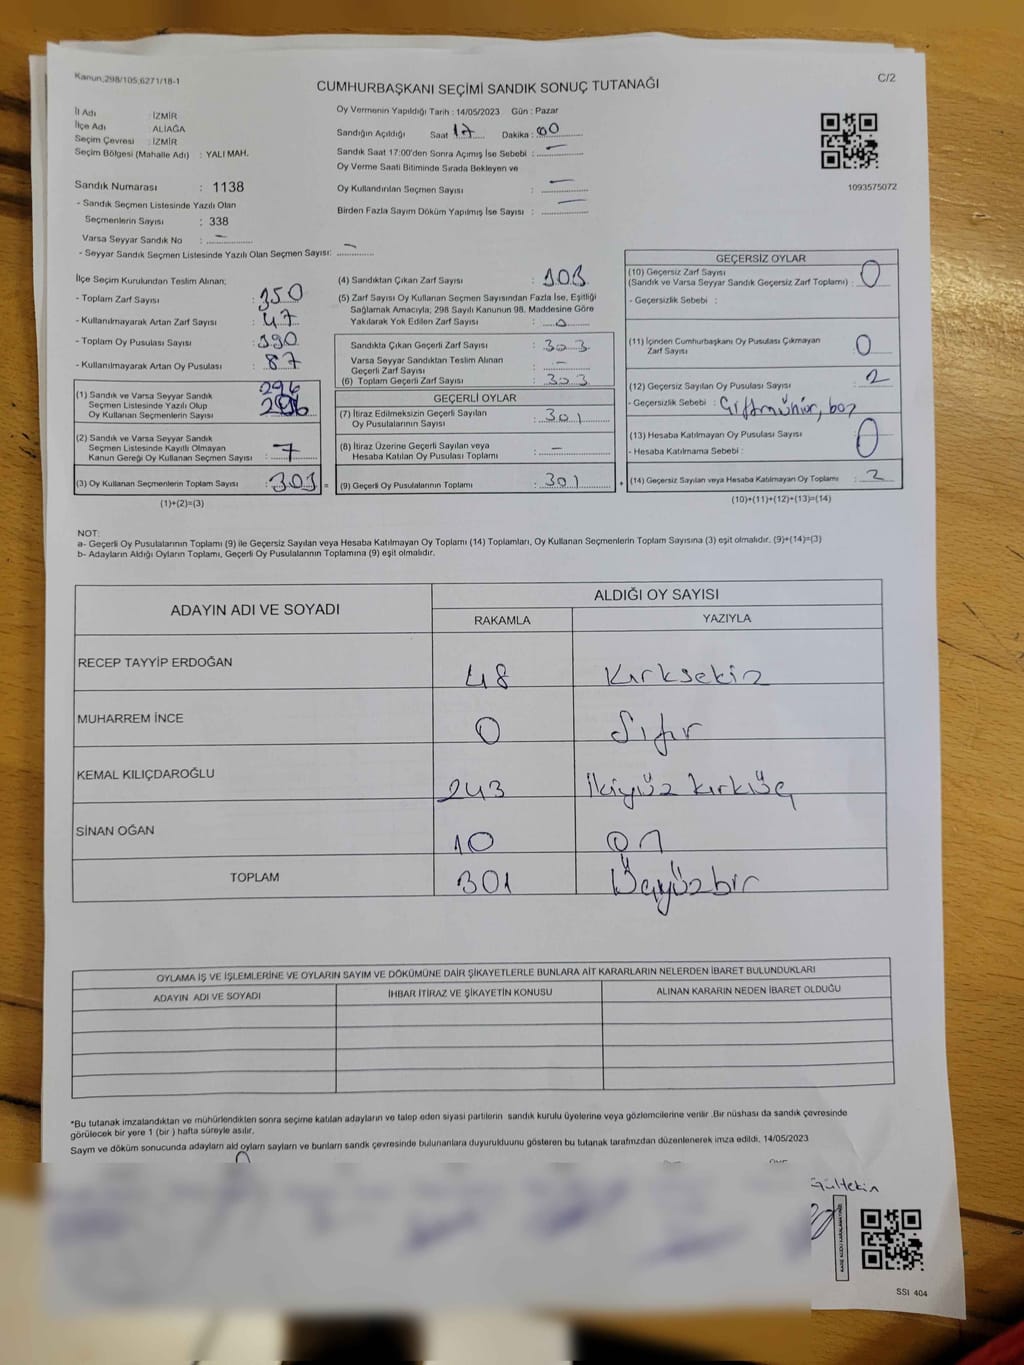 Kanun,298/105,6271/18-1
C/2
CUMHURBAŞKANI SEÇİMİ SANDIK SONUÇ TUTANAĞI
İl Adı : İZMİR
İlçe Adı : ALİAĞA
Seçim Çevresi : İZMİR
Seçim Bölgesi (Mahalle Adı) : YALI MAH.
Sandık Numarası : 1138
- Sandık Seçmen Listesinde Yazılı Olan
Seçmenlerin Sayısı : 338
Varsa Seyyar Sandık No : –
- Seyyar Sandık Seçmen Listesinde Yazılı Olan Seçmen Sayısı: –
Oy Vermenin Yapıldığı Tarih : 14/05/2023 Gün : Pazar
Sandığın Açıldığı Saat 17 Dakika : 00
Sandık Saat 17:00'den Sonra Açımış İse Sebebi : –
Oy Verme Saati Bitiminde Sırada Bekleyen ve
Oy Kullandırılan Seçmen Sayısı : –
Birden Fazla Sayım Döküm Yapılmış İse Sayısı : –
1093575072
İlçe Seçim Kurulundan Teslim Alınan;
- Toplam Zarf Sayısı : 350
- Kullanılmayarak Artan Zarf Sayısı : 47
- Toplam Oy Pusulası Sayısı : 390
- Kullanılmayarak Artan Oy Pusulası : 87
296
(1) Sandık ve Varsa Seyyar Sandık
Seçmen Listesinde Yazılı Olup
Oy Kullanan Seçmenlerin Sayısı : 296
(2) Sandık ve Varsa Seyyar Sandık
Seçmen Listesinde Kayıtlı Olmayan
Kanun Gereği Oy Kullanan Seçmen Sayısı : 7
(3) Oy Kullanan Seçmenlerin Toplam Sayısı : 303 =
(1)+(2)=(3)
(4) Sandıktan Çıkan Zarf Sayısı : 303
(5) Zarf Sayısı Oy Kullanan Seçmen Sayısından Fazla İse, Eşitliği
Sağlamak Amacıyla; 298 Sayılı Kanunun 98. Maddesine Göre
Yakılarak Yok Edilen Zarf Sayısı : 0
Sandıkta Çıkan Geçerli Zarf Sayısı : 303
Varsa Seyyar Sandıktan Teslim Alınan
Geçerli Zarf Sayısı : –
(6) Toplam Geçerli Zarf Sayısı : 303
GEÇERLİ OYLAR
(7) İtiraz Edilmeksizin Geçerli Sayılan
Oy Pusulalarının Sayısı : 301
(8) İtiraz Üzerine Geçerli Sayılan veya
Hesaba Katılan Oy Pusulası Toplamı : –
(9) Geçerli Oy Pusulalarının Toplamı : 301 +
GEÇERSİZ OYLAR
(10) Geçersiz Zarf Sayısı
(Sandık ve Varsa Seyyar Sandık Geçersiz Zarf Toplamı) : 0
- Geçersizlik Sebebi :
(11) İçinden Cumhurbaşkanı Oy Pusulası Çıkmayan
Zarf Sayısı : 0
(12) Geçersiz Sayılan Oy Pusulası Sayısı : 2
- Geçersizlik Sebebi : Çiftmühür, boş
(13) Hesaba Katılmayan Oy Pusulası Sayısı : 0
- Hesaba Katılmama Sebebi :
(14) Geçersiz Sayılan veya Hesaba Katılmayan Oy Toplamı : 2
(10)+(11)+(12)+(13)=(14)
NOT:
a- Geçerli Oy Pusulalarının Toplamı (9) ile Geçersiz Sayılan veya Hesaba Katılmayan Oy Toplamı (14) Toplamları, Oy Kullanan Seçmenlerin Toplam Sayısına (3) eşit olmalıdır. (9)+(14)=(3)
b- Adayların Aldığı Oyların Toplamı, Geçerli Oy Pusulalarının Toplamına (9) eşit olmalıdır.
ADAYIN ADI VE SOYADI
ALDIĞI OY SAYISI
RAKAMLA YAZIYLA
RECEP TAYYİP ERDOĞAN 48 Kırksekiz
MUHARREM İNCE 0 Sıfır
KEMAL KILIÇDAROĞLU 243 İkiyüz kırküç
SİNAN OĞAN 10 on
TOPLAM 301 Üçyüzbir
OYLAMA İŞ VE İŞLEMLERİNE VE OYLARIN SAYIM VE DÖKÜMÜNE DAİR ŞİKAYETLERLE BUNLARA AİT KARARLARIN NELERDEN İBARET BULUNDUKLARI
ADAYIN ADI VE SOYADI İHBAR İTİRAZ VE ŞİKAYETİN KONUSU ALINAN KARARIN NEDEN İBARET OLDUĞU
*Bu tutanak imzalandıktan ve mühürlendikten sonra seçime katılan adayların ve talep eden siyasi partilerin sandık kurulu üyelerine veya gözlemcilerine verilir .Bir nüshası da sandık çevresinde
görülecek bir yere 1 (bir ) hafta süreyle asılır.
Sayım ve döküm sonucunda adayların ald oyların sayların ve bunların sandk çevresinde bulunanlara duyurulduunu gösteren bu tutanak tarafmzdan düzenlenerek imza edildi. 14/05/2023
Gültekin
SSI 404